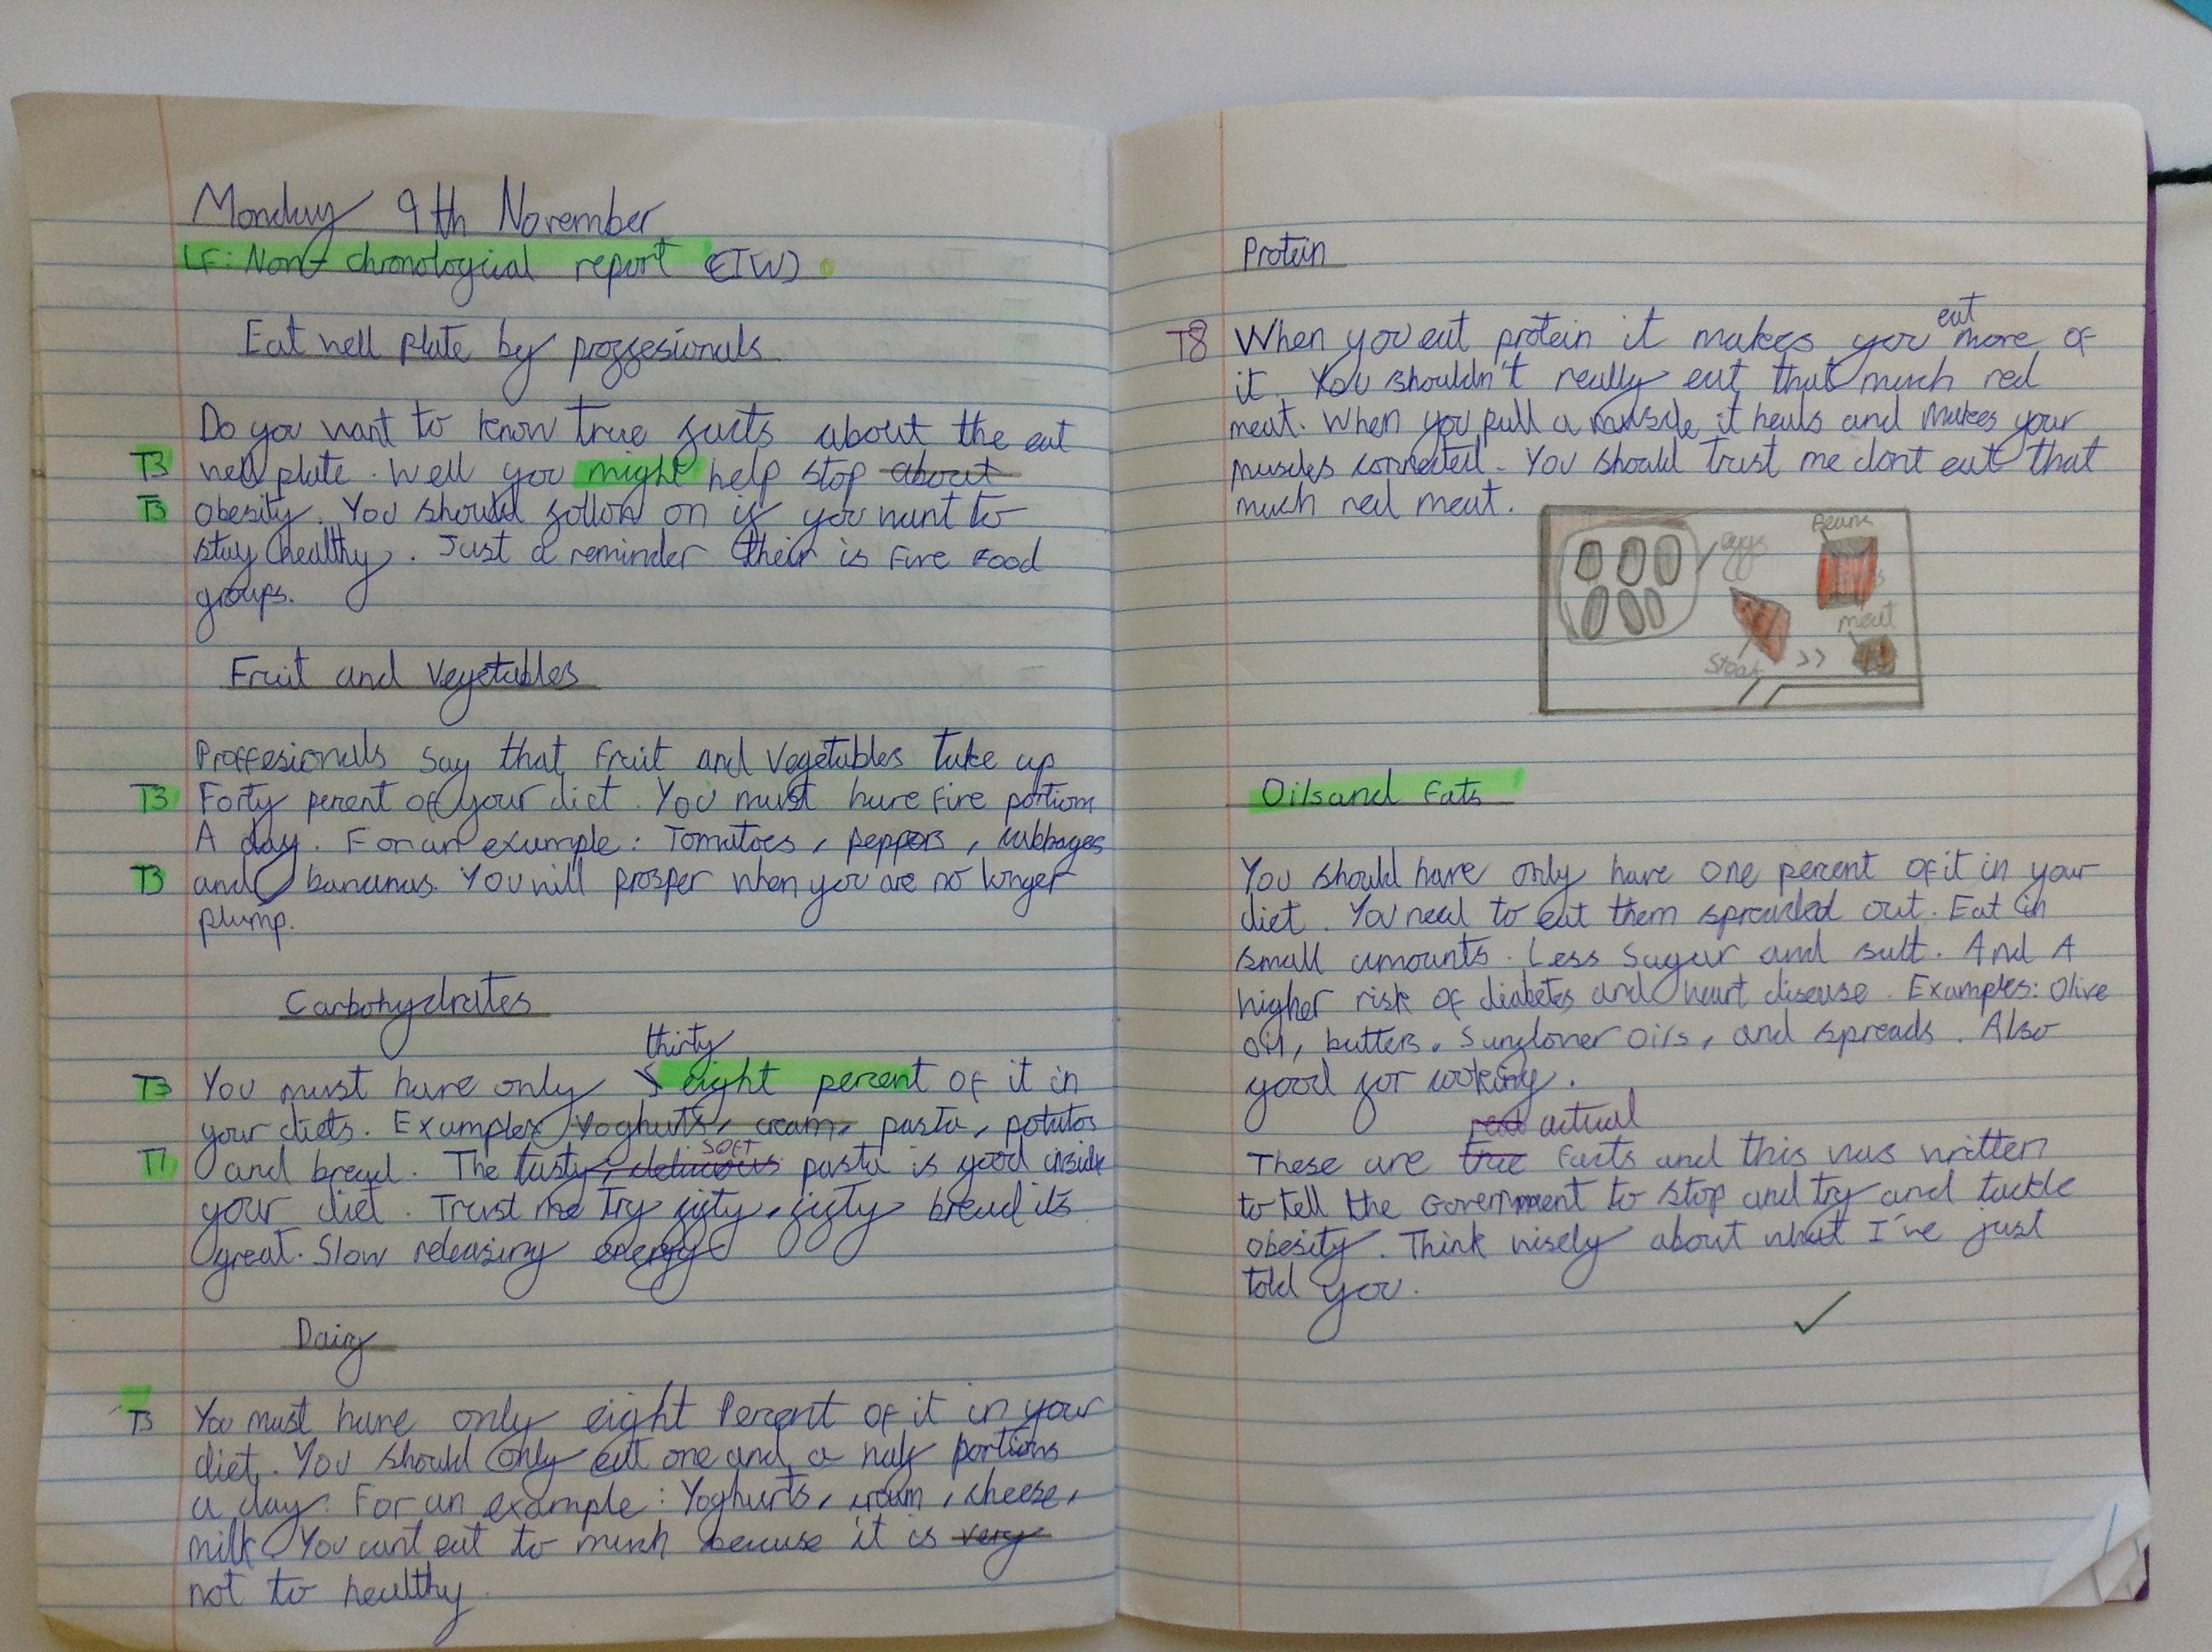 Monday 9th November
LF: Non-chronological report (EIW)
Eat well plate by proffesionals
Do you want to know true facts about the eat
T3 well plate. Well you might help stop about
T3 obesity. You should follow on if you want to
stay healthy. Just a reminder their is five food
groups.
Fruit and Vegetables
Proffesionals say that fruit and vegetables take up
T3 Forty percent of your diet. You must have five portions
A day. For an example: Tomatoes, peppers, cabbages
T3 and bananas. You will prosper when you are no longer
plump.
Carbohydrates
thirty
T3 You must have only eight percent of it in
your diets. Examples Yoghurts, cream, pasta, potatos
SOFT
T1 and bread. The tasty, delicious pasta is good inside
your diet. Trust me Try fifty, fifty bread its
great. Slow releasing energy
Dairy
T3 You must have only eight Percent of it in your
diet. You should only eat one and a half portions
a day. For an example: Yoghurts, cream, cheese,
milk. You cant eat to much because it is very
not to healthy.
Protein
eat
T8 When you eat protein it makes you more of
it. You shouldn't really eat that much red
meat. When you pull a muscle it heals and makes your
muscles connected. You should Trust me dont eat that
much red meat.
Beans
eggs
meat
Steak
Oils and Fats
You should have only have one percent of it in your
diet. You need to eat them spreaded out. Eat in
small amounts. Less sugar and salt. And A
higher risk of diabetes and heart disease. Examples: Olive
oil, butters, Sunflower oils, and spreads. Also
good for cooking.
real actual
These are true facts and this was written
to tell the Government to stop and try and tackle
obesity. Think wisely about what I've just
told you.